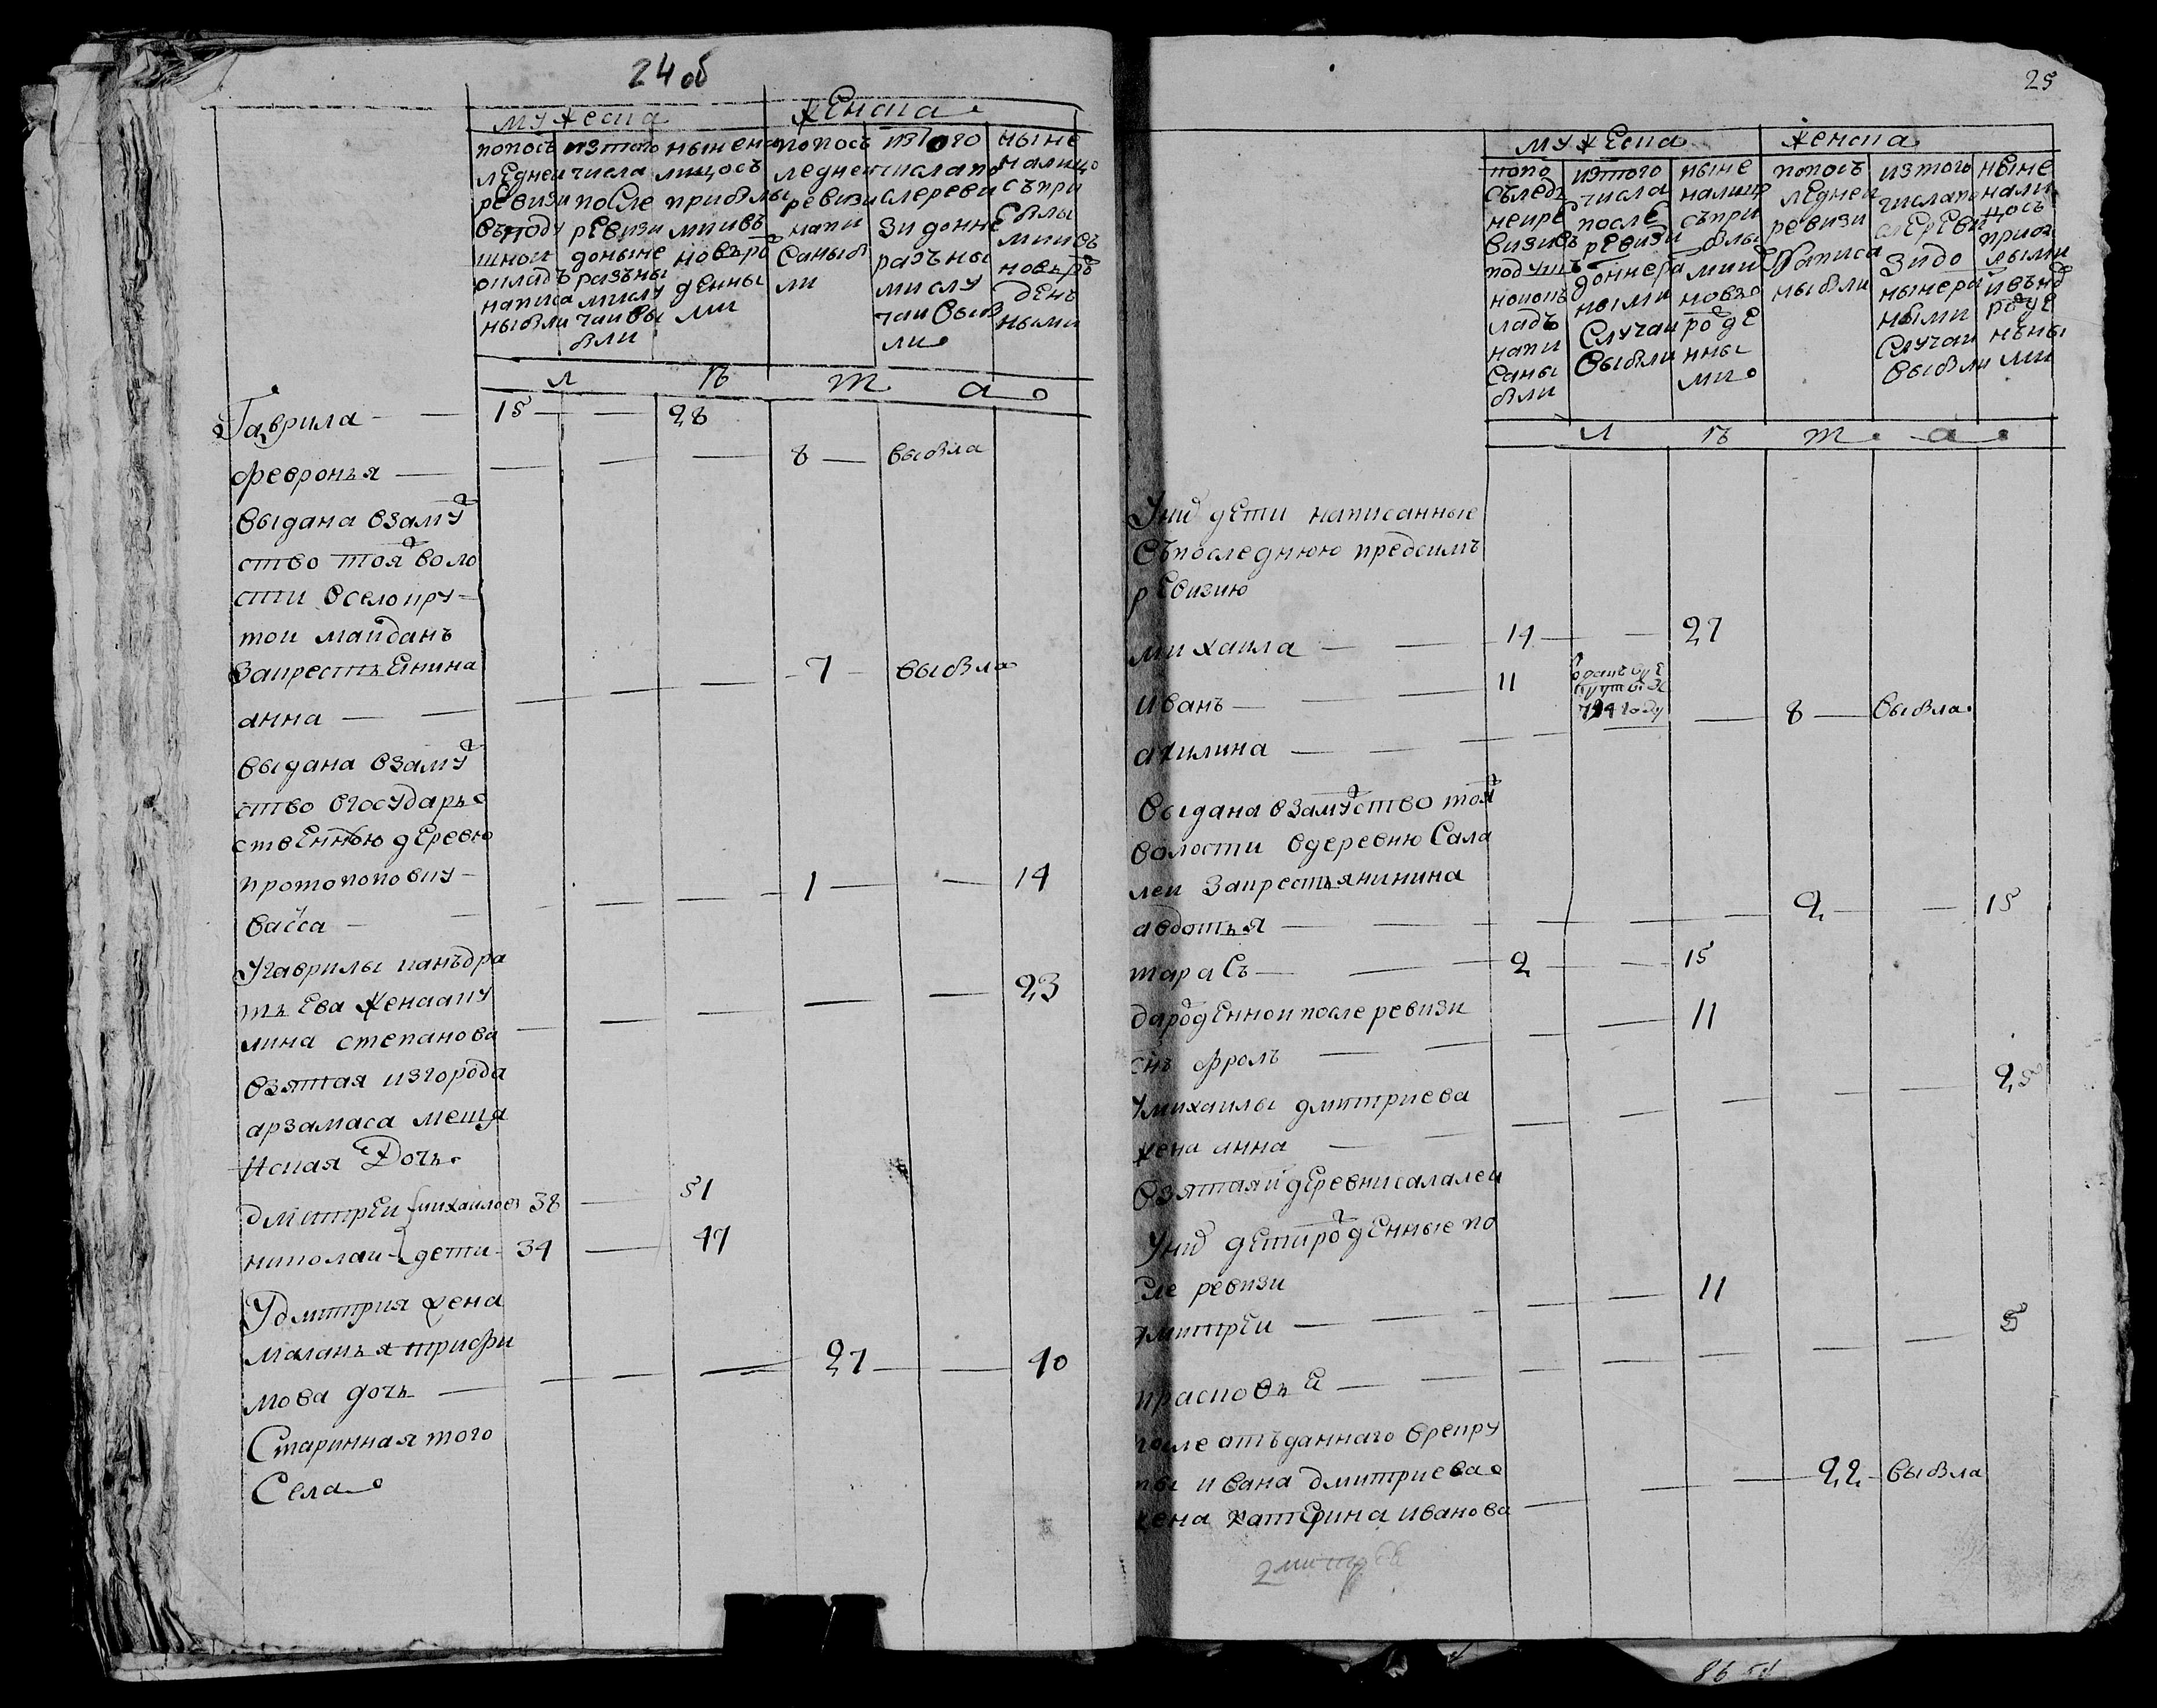 24 об
мужеска
женска
попосъ
ледней
ревизи
въподу
шной
окладъ
написа
ны были
изтого
числа
после
ревизи
доныне
разъны
мислу
чаи вы
были
ныне на
лицосъ
прибылы
мии въ
новъ ро
денны
ми
попосъ
ледней
ревизи
напи
саны б
ли
изтого
числа по
сле реви
зи доны
разъны
мислу
чаи выб
ли
ныне
налицо
съпри
былы
мии въ
новъ ро
денъ
ными
л ѣ т а
Гаврила — 15 — 28
февронья — 8 — выбла
выдана взаму
ство тоя воло
сти всело кру-
той майданъ
закрестьенина
анна — 7 — выбла
выдана взаму
ство вгосударьс
твенною деревю
протопоповку
васса — 1 — 14
Угаврилы канъдра
тьева жена аку
лина степанова — 23
взятая изгорода
арзамаса меща
нская Дочь
дмитрей михайлов 38 — 51
николай дети 34 — 47
Удмитрия жена
маланья трифи
мова дочь — 27 — 40
Старинная того
Села
25
мужеска
женска
попо
съледъ
ней ре
визиѣ
подуш
номок
ладъ
напи
саны
были
изтого
числа
после
ревизи
доне ра
ными
случаи
выбли
ныне
налице
съпри
былы
мии
новоро
роде
нны
ми
попосъ
ледней
ревизи
написа
ны были
изтого
числа по
сле реви
зи до
ныне ра
ными
случаи
выбли
ныне
нали
цось
прибы
лыми
ивъно
роде
нъны
ми
л ѣ т а
Уних дети написанные
въпоследнюю предсимъ
ревизию
михаила — 14 — 27
иванъ — 11 отданъ вре
круты в
794 году
акилина — 8 — выбла
выдана взамуство тоя
волости вдеревню Сала
леи закрестьянинина
авдотья — 2 — 15
тарасъ — 2 — 15
дароденной после ревизи
снъ фролъ — 11
Умихаилы дмитриева
жена анна — 25
взятая издеревни салалей
Уних дети роденные по
сле ревизи
дмитрей — 11
прасковья — 5
после отъданнаго врекру
ты ивана дмитриева
жена катерина иванова — 22 — выбла